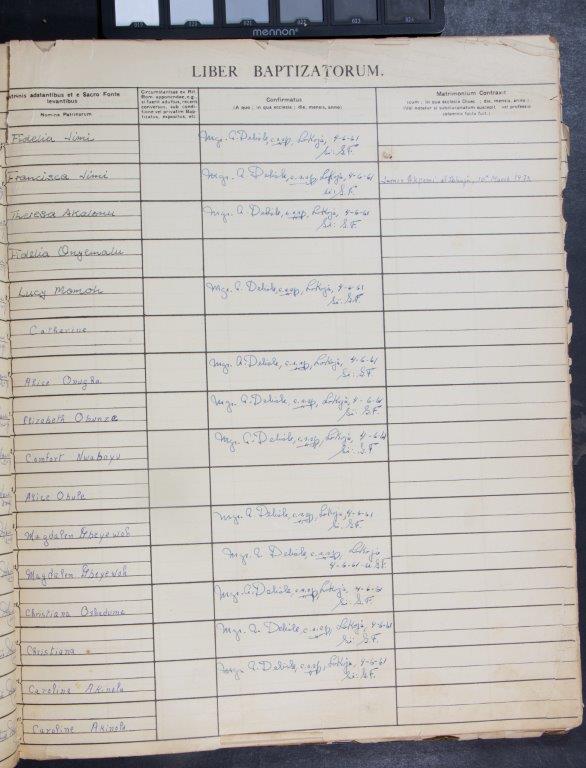 mennon
LIBER BAPTIZATORUM.
adstantibus et e Sacro Fonte
levantibus
Nomina Patrinorum
Circumstantiae ex Rit.
Rom. apponendae, e.g.,
si fuerit adultus, recens
conversus, sub condi-
tione vel privatim Bap-
tizatus, expositus, etc.
Confirmatus
(A quo ; in qua ecclesia ; die, mensis, anno)
Matrimonium Contraxit
(cum ; in qua ecclesia ; die, mensis, anno ;
vel professio
Fidelia Jimi
Mgr. A. Deliale, c.s.sp, Lokoja, 4-6-61
Si: S.F.
Francisca Jimi
Mgr. A. Deliale, c.s.sp, Lokoja, 4-6-61
Si: S.F.
10th March 1972
Theresa Akalonu
Mgr. A. Deliale, c.s.sp, Lokoja, 4-6-61
Si: S.F.
Fidelia Onyemalu
Lucy Momoh
Mgr. A. Deliale, c.s.sp, Lokoja, 4-6-61
Si: S.F.
Catherine
Alice
Mgr. A. Deliale, c.s.sp, Lokoja, 4-6-61
Si: S.F.
Elizabeth Obunza
Mgr. A. Deliale, c.s.sp, Lokoja, 4-6-61
Si: S.F.
Comfort Nwaboyu
Mgr. A. Deliale, c.s.sp, Lokoja, 4-6-61
Si: S.F
Alice Obule
Magdalen Gbeyewoh
Mgr. A. Deliale, c.s.sp, Lokoja, 4-6-61
Si: S.F.
Magdalen Gbeyewoh
Mgr. A. Deliale, c.s.sp, Lokoja,
4-6-61 - si S.F.
Christiana
Mgr. A. Deliale, c.s.sp, Lokoja, 4-6-61
Si: S.F.
Christiana
Mgr. A. Deliale, c.s.sp, Lokoja, 4-6-61
Si: S.F.
Caroline Akinola
Mgr. A. Deliale, c.s.sp, Lokoja, 4-6-61
Si: S.F.
Caroline Akinola